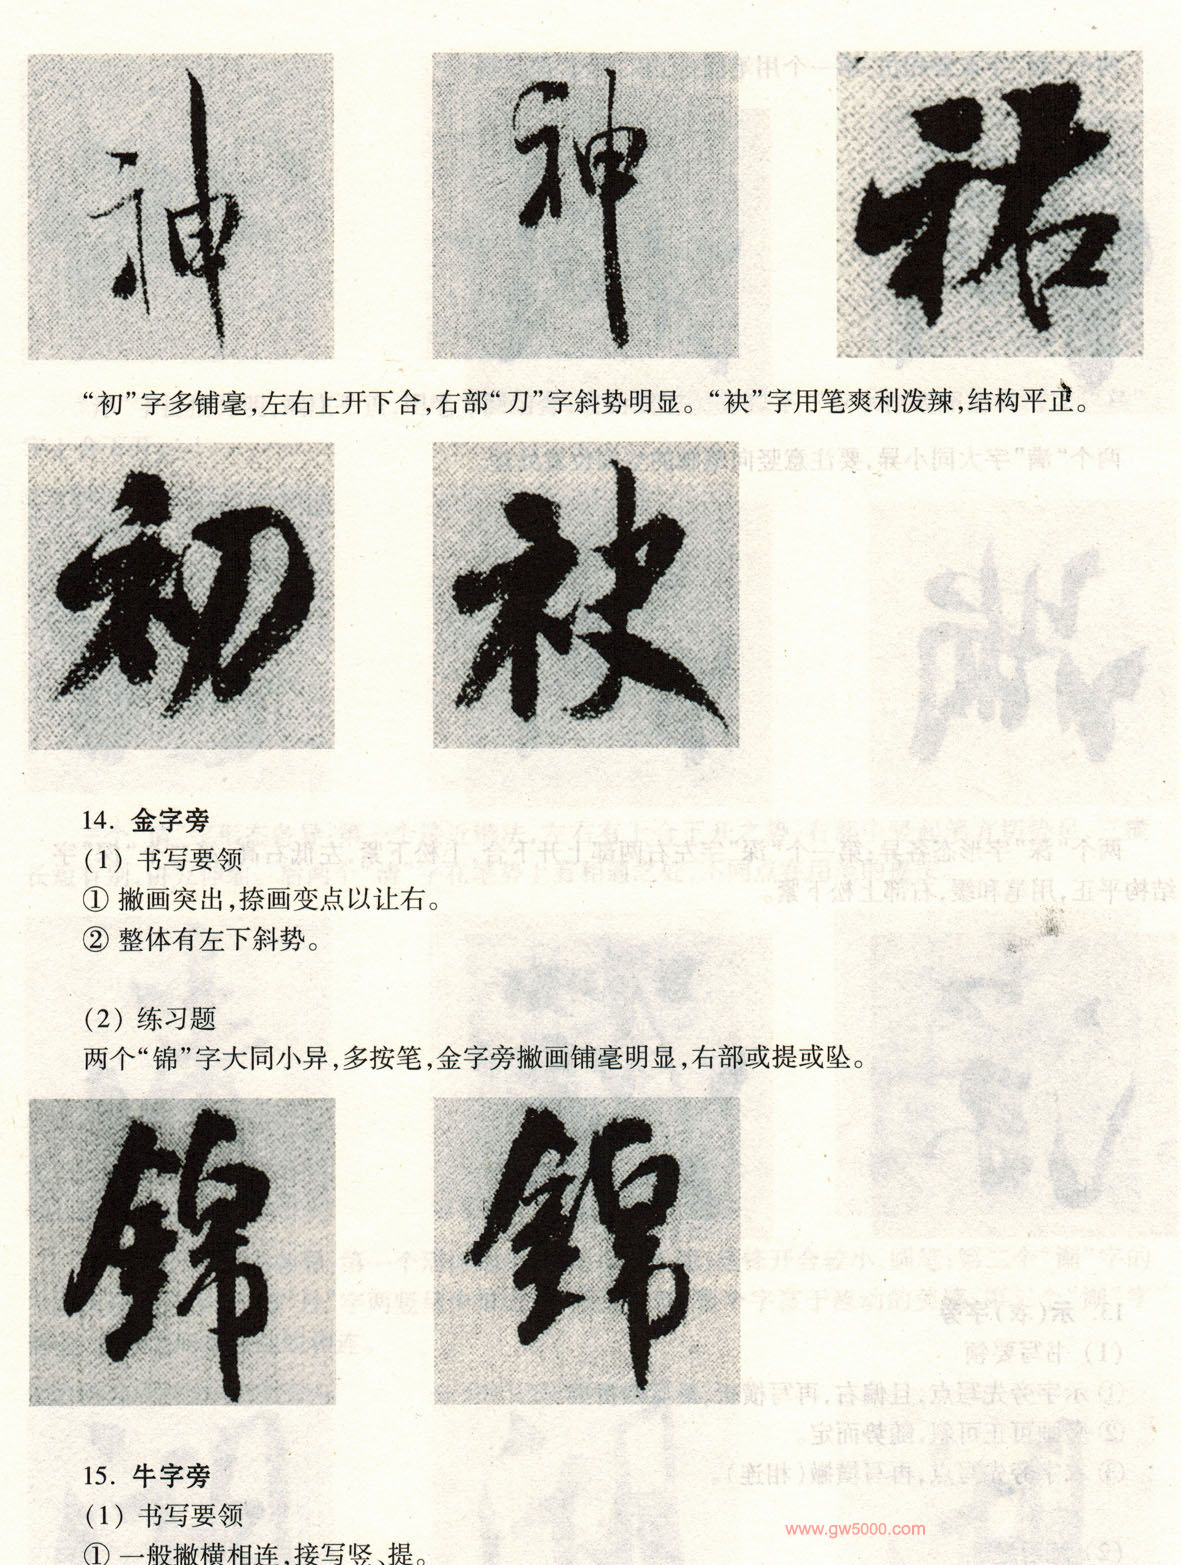 神 神 祐
“初”字多铺毫,左右上开下合,右部“刀”字斜势明显。“袂”字用笔爽利泼辣,结构平正。
初 袂
14. 金字旁
(1) 书写要领
① 撇画突出,捺画变点以让右。
② 整体有左下斜势。
(2) 练习题
两个“锦”字大同小异,多按笔,金字旁撇画铺毫明显,右部或提或坠。
錦 錦
15. 牛字旁
(1) 书写要领
① 一般撇横相连,接写竖、提。
www.gw5000.com